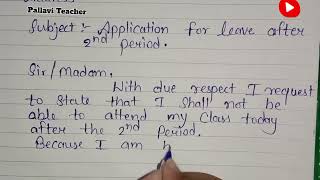 Pallavi Teacher
Subject :- Application for leave after
2nd Period.
Sir/Madam,
With due respect I request
to state that I shall not be
able to attend my Class today
after the 2nd Period.
Because I am